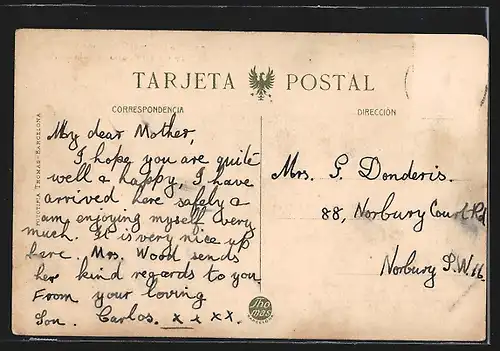 TARJETA POSTAL
CORRESPONDENCIA
DIRECCIÓN
FOTOTIPIA THOMAS-BARCELONA
My dear Mother,
I hope you are quite
well & happy, I have
arrived here safely &
am enjoying myself very
much. It is very nice up
here. Mrs. Wood sends
her kind regards to you.
From your loving
Son. Carlos. x x x x
Mrs. G. Donderis.
88, Norbury Court Rd
Norbury S.W 16.
Thomas
BARCELONA